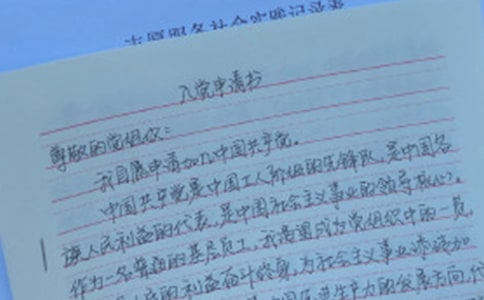 志愿服务社会实践记录表
入党申请书
尊敬的党组织：
我自愿申请加入中国共产党。
中国共产党是中国工人阶级的先锋队，是中国各
族人民利益的代表，是中国社会主义事业的领导核心。
作为一名普通的基层员工，我渴望成为党组织中的一员，
人民的利益奋斗终身，为社会主义事业添砖加
生产力的发展方向，代